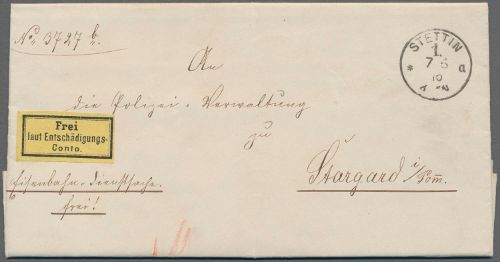 No 3727 b.
STETTIN
1.
7 5
*
a
10
An
die Polizei-Verwaltung
zu
Stargard i/Pom.
Frei
laut Entschädigungs-
Conto.
Eisenbahn-Dienstsache.
frei!